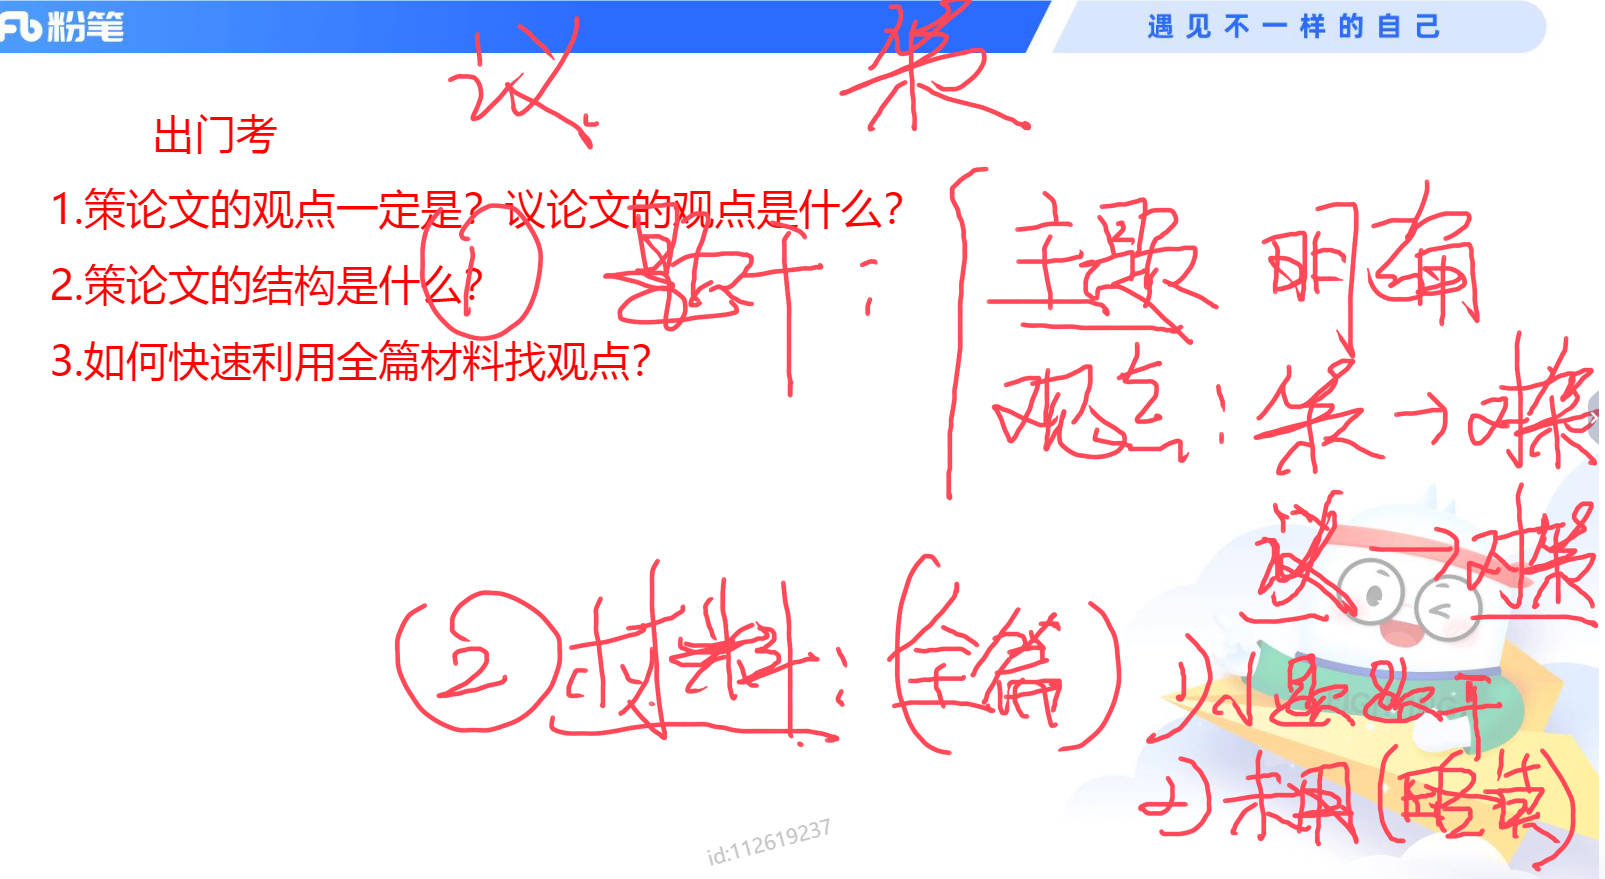 粉笔
遇见不一样的自己
议 策
出门考
1.策论文的观点一定是？议论文的观点是什么？
2.策论文的结构是什么？
3.如何快速利用全篇材料找观点？
① 题干：
主题 明确
观点：策→对策
议→对策
② 材料：(全篇)
1)小题题干
2)未用(略读)
id:112619237